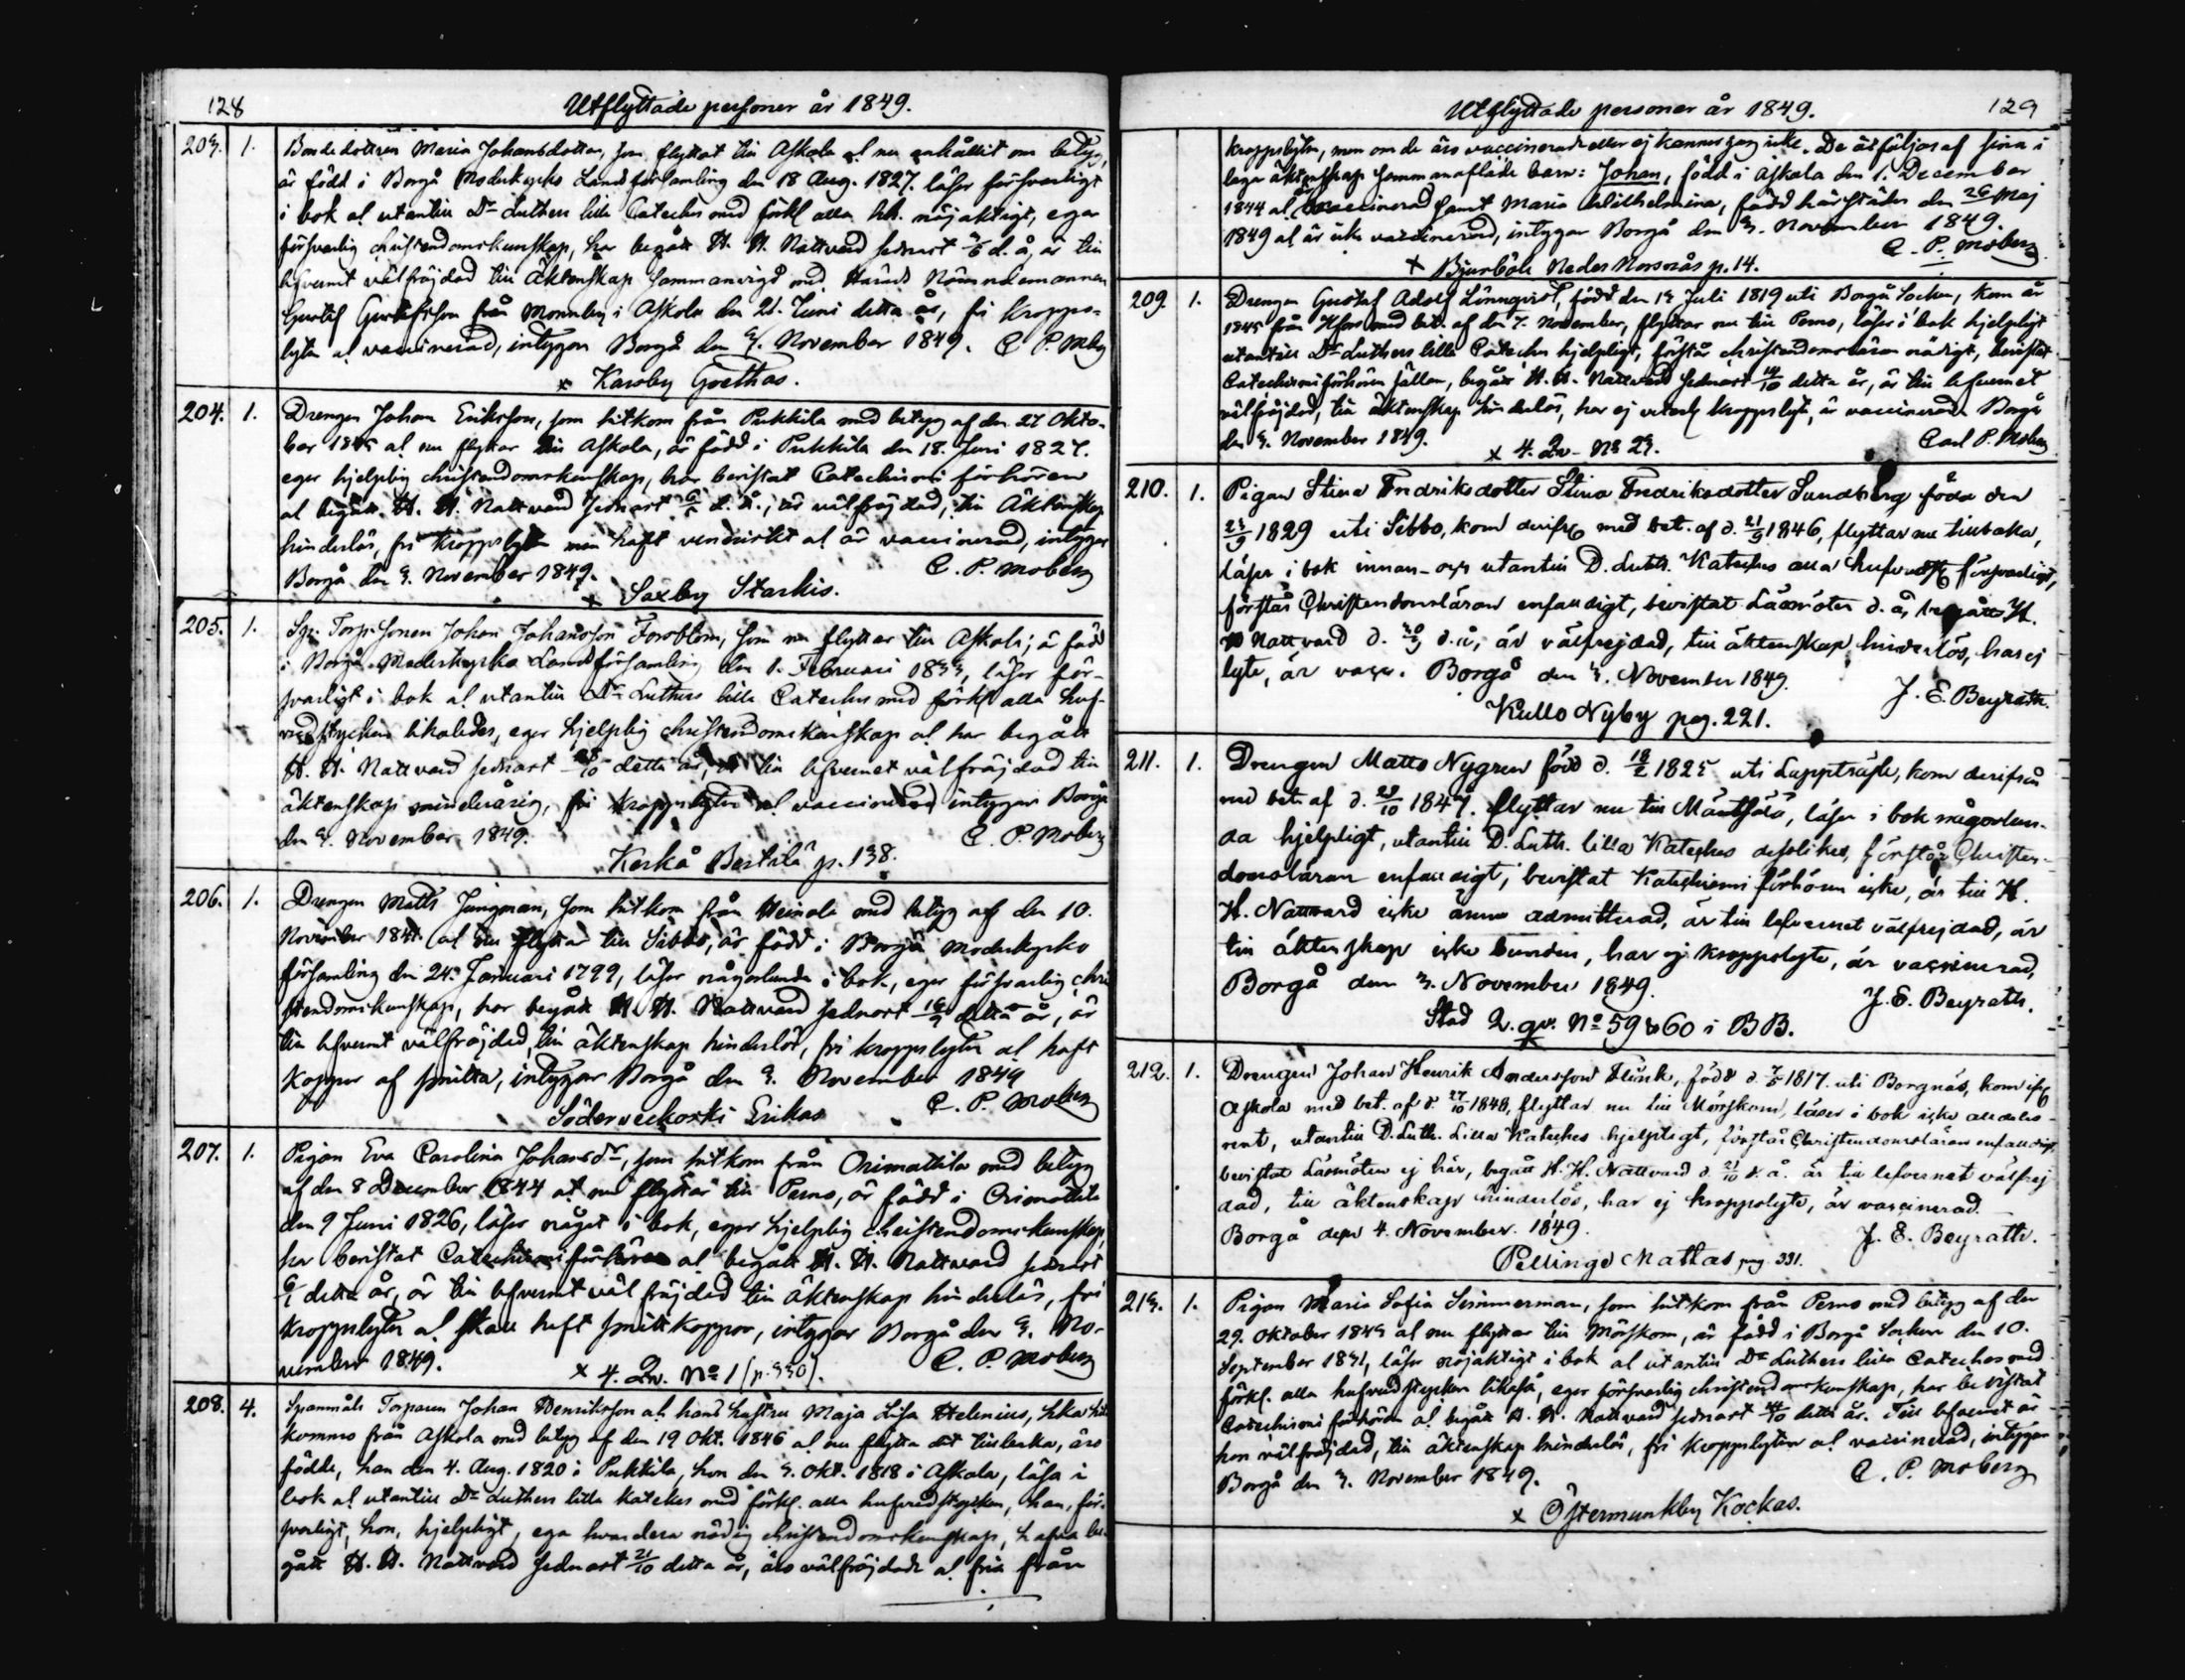 128
Utflyttade personer år 1849.
203. 1. Bondedottren Maria Johansdotter, som flyttat till Askola och nu anhållit om betyg,
är född i Borgå Moderkyrko Landsförsamling den 18 Aug. 1827. läser försvarligt
i bok och utantill Dr Luthers lilla Cateches med förkl. alla hst. nöjaktigt, eger
försvarlig christendomskunskap, har begått H. H. Nattvard sednast d. å, är till
lefvernet välfräjdad till Äktenskap sammanvigd med Härads Nämndemannen
Gustaf Gustafsson från Monnby i Askola den 21. Juni detta år, fri kropps-
lyten och vaccinerad, intygar Borgå den 3. November 1849. C. P. Mbg
x Karsby Goethas.
204. 1. Drengen Johan Eriksson, som hitkom från Pukkila med betyg af den 27 Okto-
ber 1845 och nu flyttar till Askola, är född i Pukkila den 18. Juni 1827.
eger hjelplig christendomskunskap, har bevistat Catechismi förhören
och begått H. H. Nattvard sednast d. å., är välfräjdad, till Äktenskap
hinderlös, fri kroppslyten men haft och är vaccinerad, intygar
Borgå den 3. November 1849. C. P. Moberg
x Saxby Starkis.
205. 1. Torp. Sonen Johan Johansson Forsblom, som nu flyttar till Askola; är född
i Borgå Moderkyrko Landsförsamling den 1. Februari 1833, läser för-
svarligt i bok och utantill Dr Luthers lilla Cateches med förkl alla huf-
vudstycken likaledes, eger hjelplig christendomskunskap och har begått
H. H. Nattvard sednast detta år, är till lefvernet välfräjdad till
äktenskap minderårig, fri kroppslyten och vaccinerad intygar Borgå
den 3. November 1849. C. P. Moberg
Kerkå Bertilä p. 138.
206. 1. Drengen Matts Jungman, som hitkom från Heinola med betyg af den 10.
November och nu flyttar till Sibbo, är född i Borgå moderkyrko
församling den 24. Januari 1799, läser någorlunda i bok, eger försvarlig chri
stendomskunskap, har begått H. H. Nattvard sednast detta år, är
till lefvernet välfräjdad, till äktenskap hinderlös, fri kroppslyten och haft
koppor af smitta, intygar Borgå den 3. November 1849
C. P. Moberg
Söderveckoski Erikas
207. 1. Pigan Eva Carolina Johansdr, som hitkom från Orimattila med betyg
af den 8 December 1844 och nu flyttar till Perno, är född i Orimattila
den 9 Juni 1826, läser något i bok, eger hjelplig christendomskunskap,
har bevistat Catechismi förhören och begått H. H. Nattvard sednast
detta år, är till lefvernet välfräjdad till äktenskap hinderlös, fri
kroppslyten och skall haft smittkoppor, intygar Borgå den 3. No-
vember 1849. C. P. Moberg
x 4. Qv. No 1 (p. 330).
208. 4. Torparen Johan Henriksson och hans hustru Maja Lisa Helenius, hka hit
kommo från Askola med betyg af den 19 Okt. 1846 och nu flytta dit tillbaka, äro
födde, han den 4. Aug. 1820 i Pukkila, hon den 3. Okt. 1818 i Askola, läsa i
bok och utantill Dr Luthers lilla Kateches med förkl. alla hufvudstycken, han, för-
svarligt, hon, hjelpligt, ega hvardera nödig christendomskunskap, hafva be-
gått H. H. Nattvard sednast 21/10 detta år, äro välfräjdade och fria från
Utflyttade personer år 1849.
129
kroppslyten, men om de äro vaccinerade eller ej kännes jag icke. De åtföljas af sina i
laga äktenskap sammanaflade barn: Johan, född i Askola den 1. December
1844 och vaccinerad samt Maria Wilhelmina, född härstädes den 26 Maj
1849 och är icke vaccinerad, intygar Borgå den 3. November 1849.
C. P. Moberg
x Bjurböle Neder Norrnäs p. 14.
209. 1. Drengen Gustaf Adolf Lönnqvist, född den 13 Juli 1819 uti Borgå Socken, kom år
1845 från Hfors med bet. af den 7. November, flyttar nu till Perno, läser i bok hjelpligt
utantill Dr Luthers lilla Cateches hjelpligt, förstår christendomsläran nödigt, bevistat
Catechismiförhören sällan, begått H. H. Nattvard sednast 14/10 detta år, är till lefvernet
välfräjdad, till äktenskap hinderlös, har ej kroppslyte, är vaccinerad. Borgå
den 3. November 1849. Carl P. Moberg
x 4. Qv. No 23.
210. 1. Pigan Stina Fredriksdotter Stina Fredriksdotter Sundberg född den
1829 uti Sibbo, kom derifr. med bet. af d. 1846, flyttar nu tillbaka,
läser i bok innan- och utantill D. Luth. Kateches alla hufvudst försvarligt,
förstår Christendomsläran enfaldigt, bevistat Läsmöten d. å, begått H.
H Nattvard d. d. å, är välfrejdad, till äktenskap hinderlös, har ej
lyte, är vacc. Borgå den 3. November 1849.
J. E. Beyrath.
Kullo Nyby pag. 221.
211. 1. Drengen Matts Nygren född d. 18/2 1825 uti Lappträsk, kom derifrån
med bet. af d. 1847. flyttar nu till Mäntsälä, läser i bok någorlun-
da hjelpligt, utantill D. Luth. lilla Kateches dessliked, förstår Christen-
domsläran enfaldigt, bevistat Katechismi förhören icke, är till H.
H. Nattvard icke ännu admitterad, är till lefvernet välfrejdad, är
till äktenskap icke bunden, har ej kroppslyte, är vaccinerad,
Borgå den 3. November 1849. J. E. Beyrath.
Stad 2. qv. No 59 & 60 i BB.
212. 1. Drengen Johan Henrik Andersson Flink, född d. 1817. uti Borgnäs, kom ifr
Askola med bet. af d. 27/10 1848, flyttar nu till Mörskom, läser i bok icke alldeles
rent, utantill D. Luth. Lilla Kateches hjelpligt, förstår Christendomsläran enfaldigt,
bevistat Läsmöten ej här, begått H. H. Nattvard d. 21/10 d. å. är till lefvernet välfrej
dad, till äktenskap hinderlös, har ej kroppslyte, är vaccinerad.
Borgå den 4. November. 1849. J. E. Beyrath.
Pellinge Mattas pag. 331.
213. 1. Pigan Maria Sofia Simmerman, som hitkom från Perno med betyg af den
29. Oktober och nu flyttar till Mörskom, är född i Borgå Socken den 10.
September 1831, läser nöjaktigt i bok och utantill Dr Luthers lilla Cateches med
förkl. alla hufvudstycken likaså, eger försvarlig christendomskunskap, har bevistat
Catechismi förhören och begått H. H. Nattvard sednast 14/10 detta år. Till lefvernet är
hon välfräjdad, till äktenskap hinderlös, fri kroppslyten och vaccinerad, intygar
Borgå den 3. November 1849. C. P. Moberg
x Östermunkby Kockas.